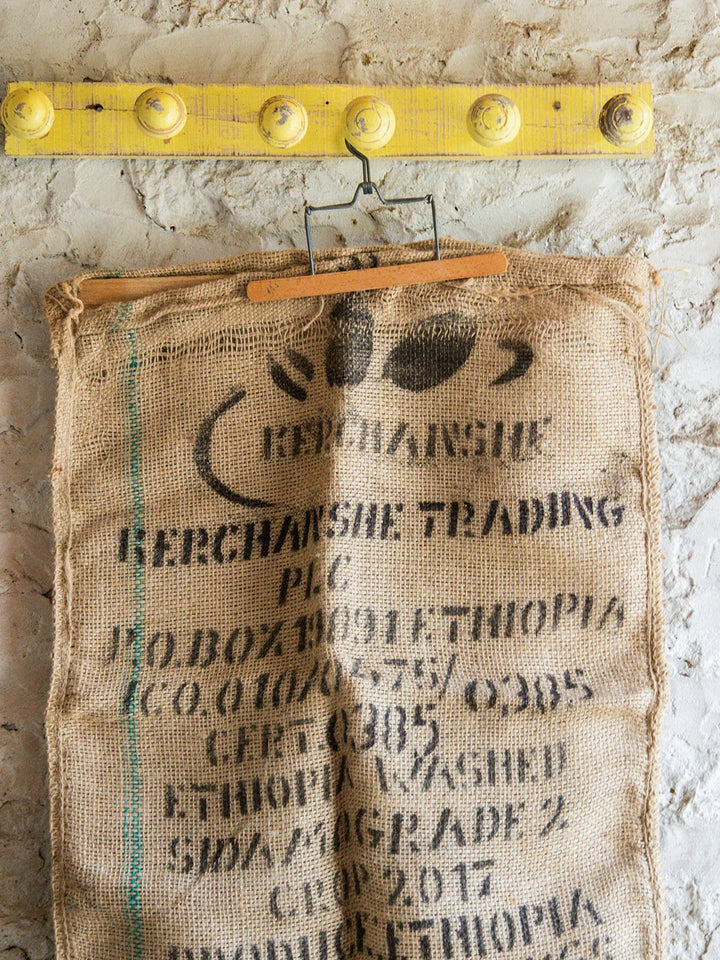 KERCHANSHE
KERCHANSHE TRADING
PLC
P.O.BOX 19091 ETHIOPIA
ICO.010/0475/0385
CERT.0385
ETHIOPIA WASHED
GRADE 2
CROP 2017
PRODUCE ETHIOPIA